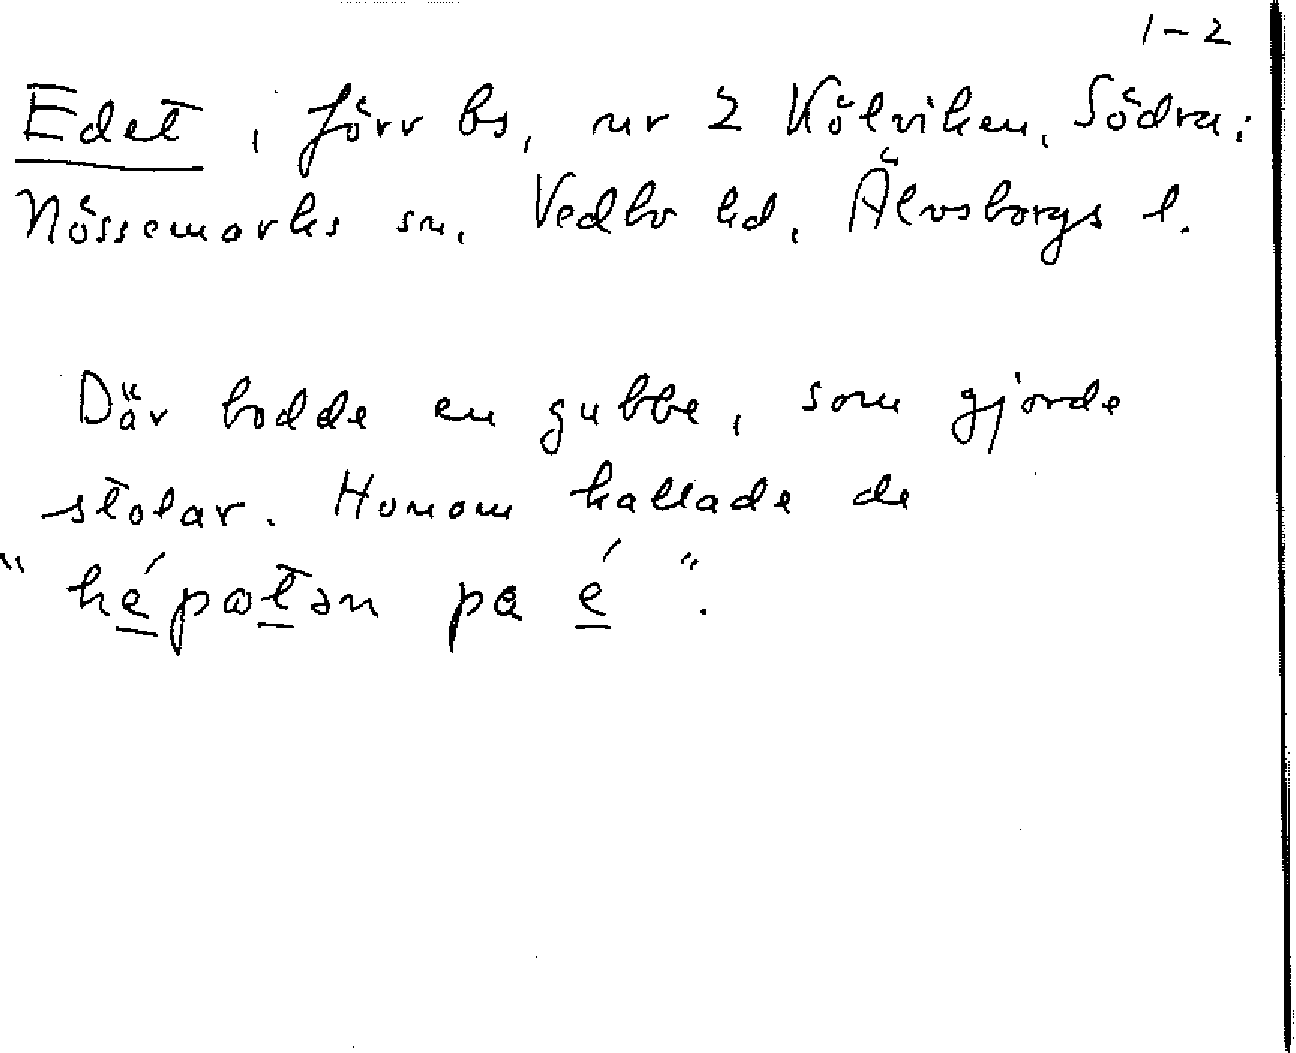 1-2
Edet, förr bs, nr 2 Kölviken, Södra;
Nössemarks sn, Vedbo hd, Älvsborgs l.
Där bodde en gubbe, som gjorde
stolar. Honom kallade de
"képatən pa é".